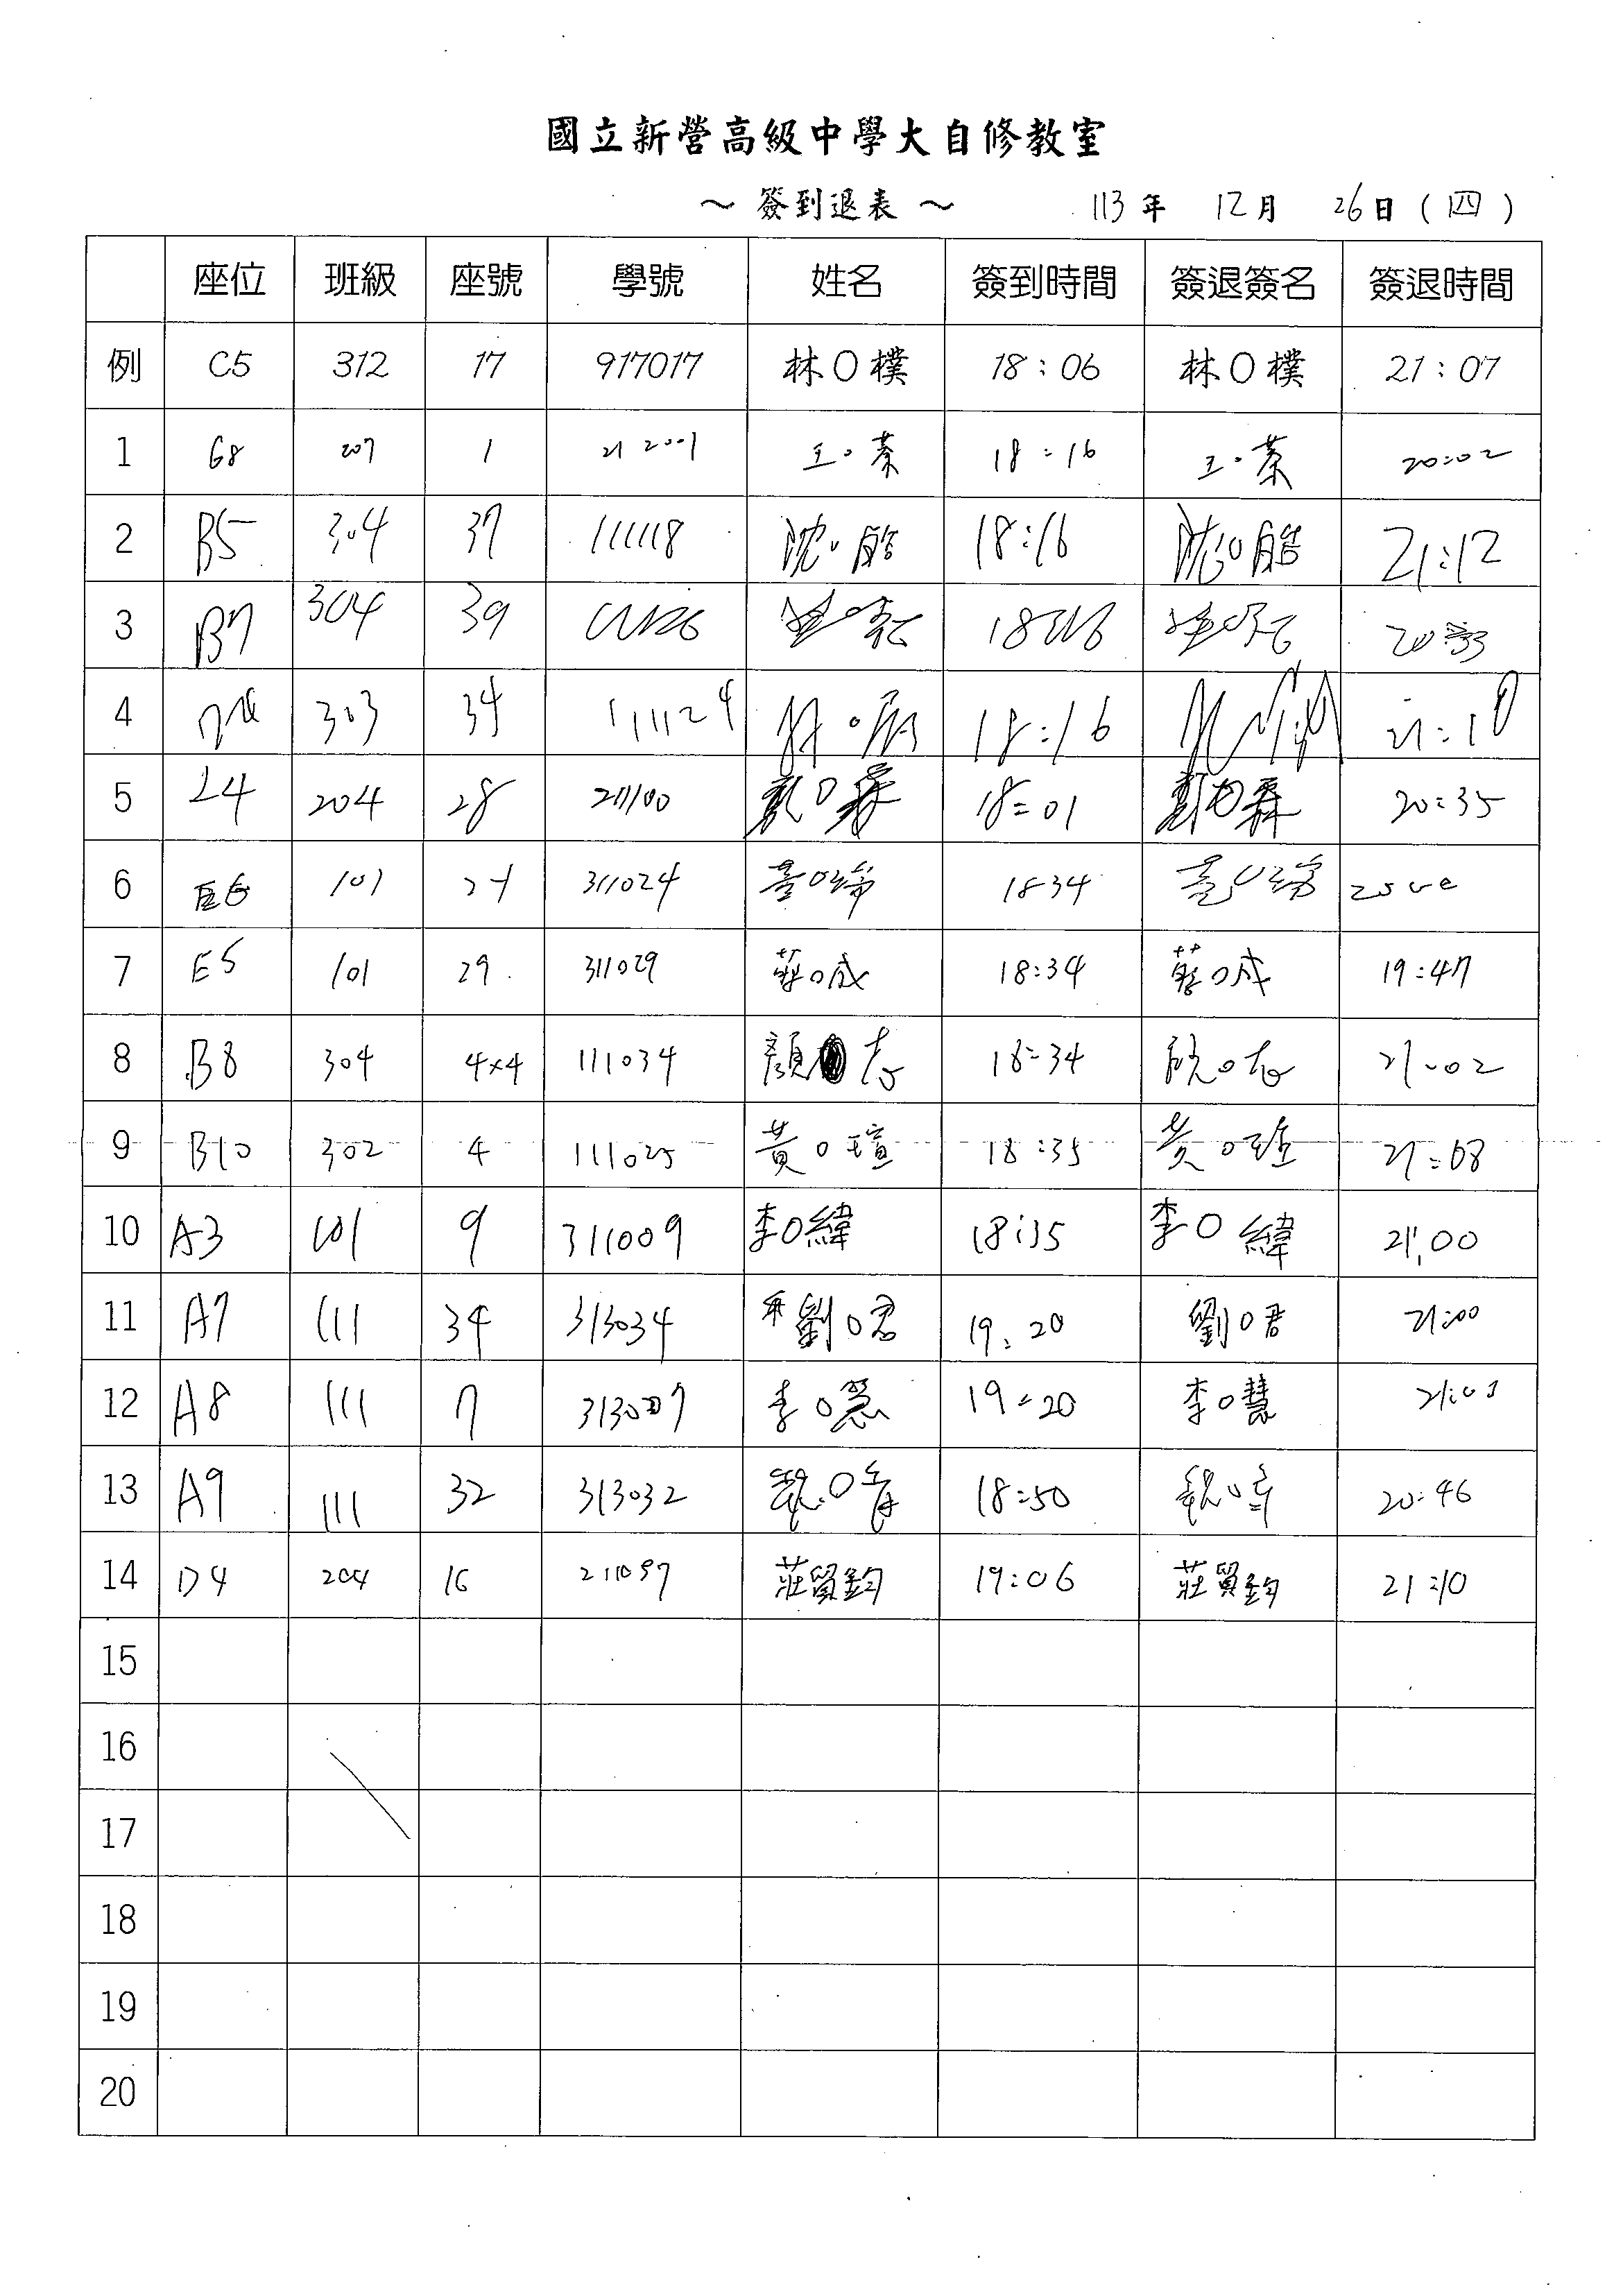 國立新營高級中學大自修教室
～ 簽到退表 ～ 113年 12月 26日 (四)
座位 班級 座號 學號 姓名 簽到時間 簽退簽名 簽退時間
例 C5 312 17 917017 林O樸 18:06 林O樸 21:07
1 G8 207 1 212001 王○棻 18:16 王○棻 20:02
2 B5 304 37 111118 沈○皓 18:16 沈○皓 21:12
3 B7 304 39
4 303 34 111124 18:16
5 L4 204 28 211100 18:01 20:35
6 E6 101 24 311024 18:34
7 E5 101 29 311029 蔡○成 18:34 蔡○成 19:47
8 B8 304 44 111034 顏 志 18:34 顏○志 21:02
9 B10 302 4 111025 黃○瑄 18:35 黃○瑄 21:08
10 A3 101 9 311009 李○緯 18:35 李○緯 21:00
11 A7 111 34 313034 劉○君 19:20 劉○君 21:00
12 A8 111 7 313007 李○慧 19:20 李○慧 21:01
13 A9 111 32 313032 18:50 20:46
14 D4 204 16 211097 莊貿鈞 19:06 莊貿鈞 21:10
15
16
17
18
19
20